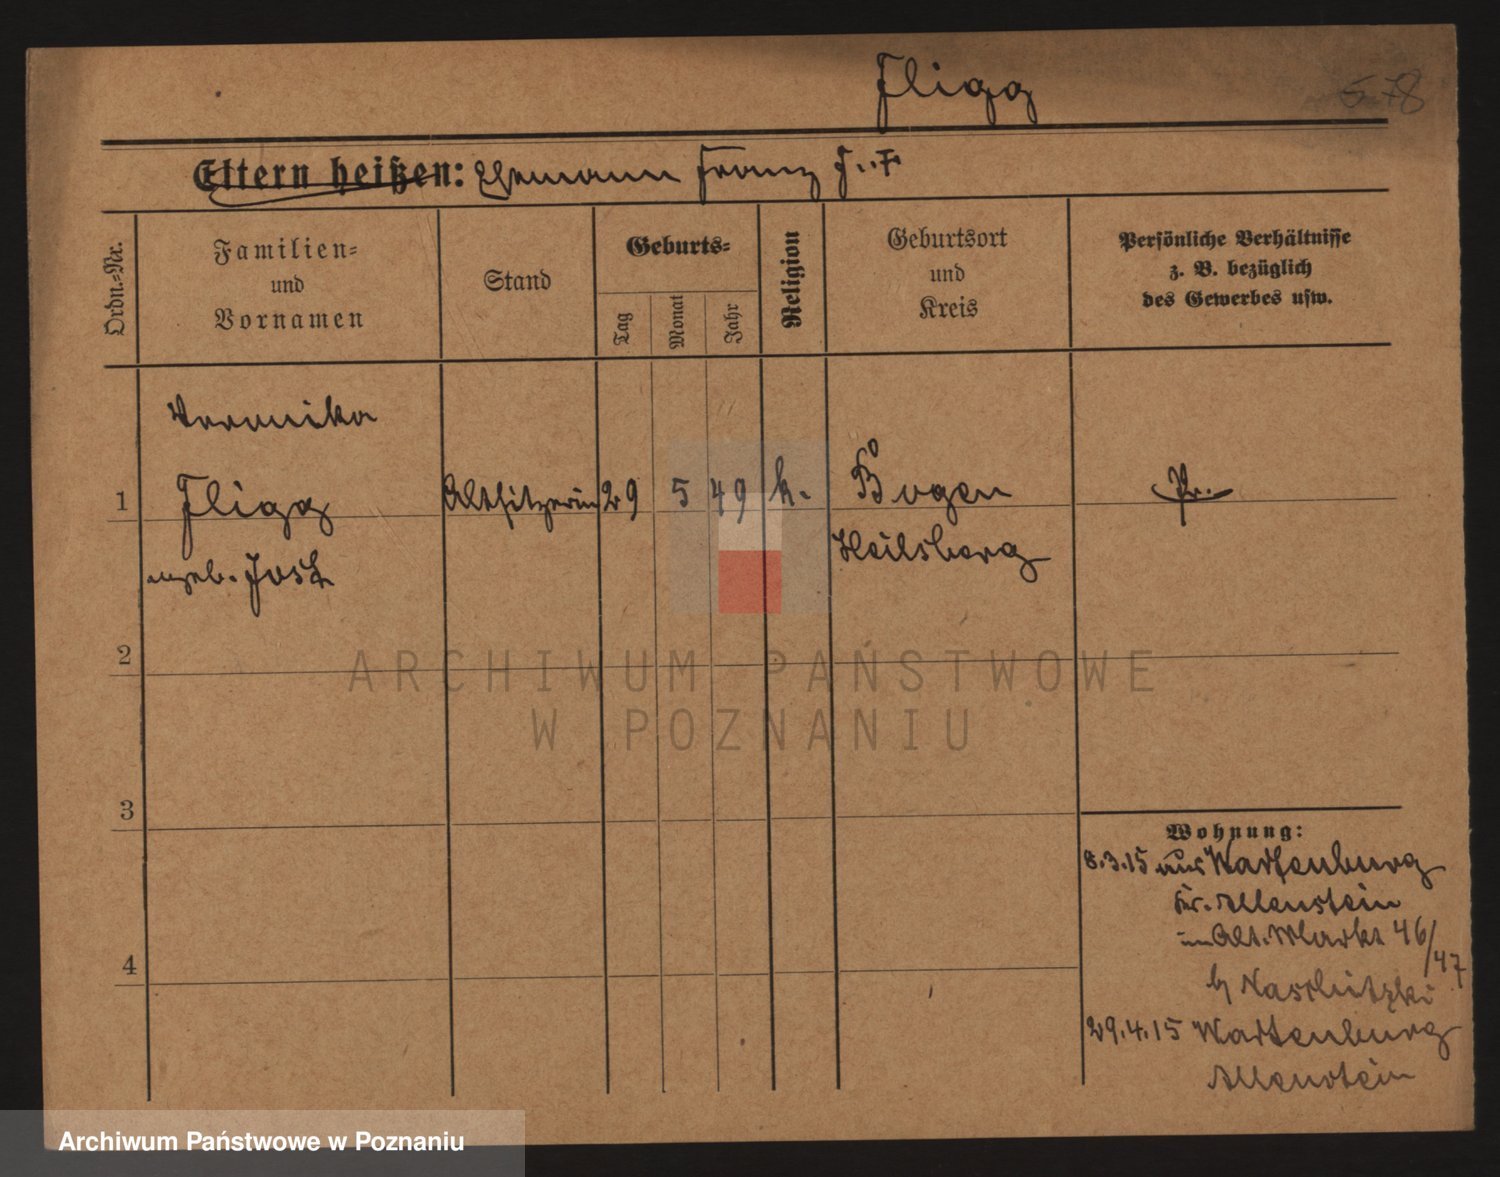 Fligg
578
Eltern heißen: Ehemann Franz F..F
Ordn.-Nr.
Familien-
und
Vornamen
Stand
Geburts-
Tag
Monat
Jahr
Religion
Geburtsort
und
Kreis
Persönliche Verhältnisse
z. B. bezüglich
des Gewerbes usw.
Veronika
1 Fligg Altsitzerin 29 5 49 k. Bogen Pr.
geb. Jost Heilsberg
2
3
4
Wohnung:
8.3.15 aus Wartenburg
Kr. Allenstein
Alt. Markt 46/47
b/
29.4.15 Wartenburg
Allenstein
ARCHIWUM PAŃSTWOWE
W POZNANIU
Archiwum Państwowe w Poznaniu